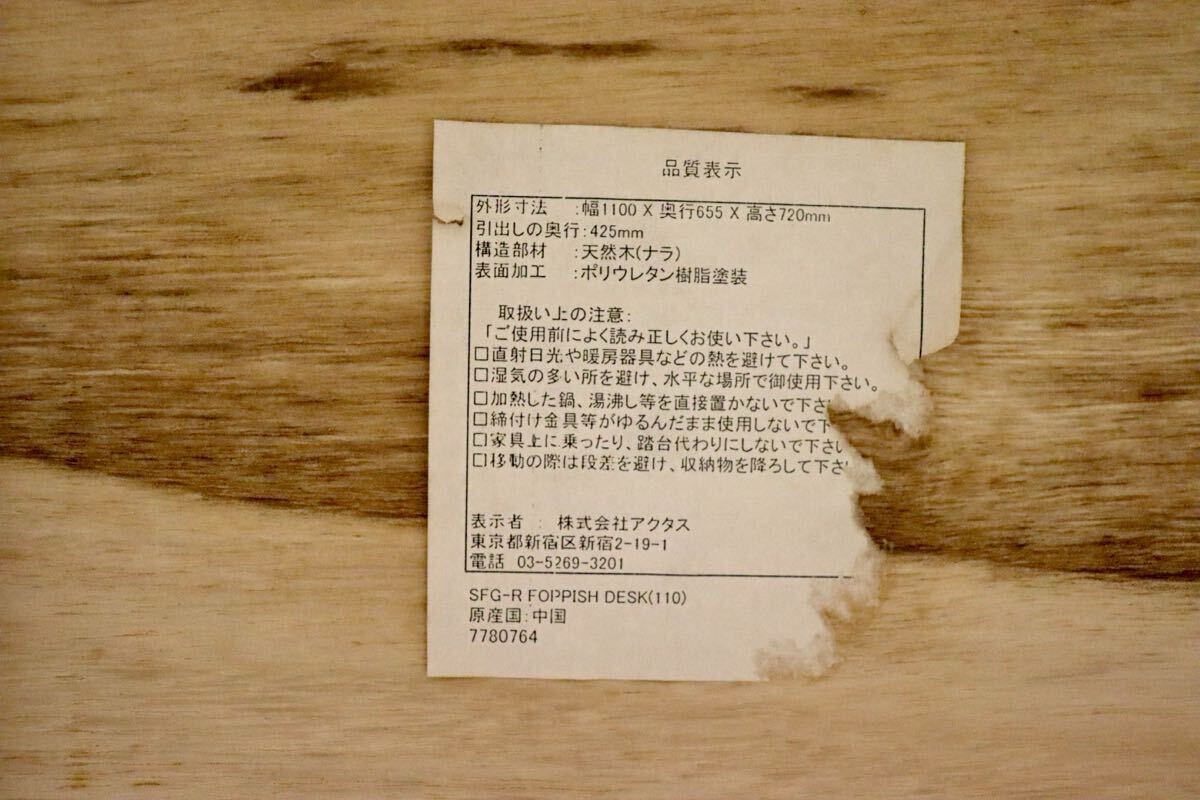 品質表示
外形寸法 :幅1100 X 奥行655 X 高さ720mm
引出しの奥行:425mm
構造部材 :天然木(ナラ)
表面加工 :ポリウレタン樹脂塗装
取扱い上の注意:
「ご使用前によく読み正しくお使い下さい。」
□直射日光や暖房器具などの熱を避けて下さい。
□湿気の多い所を避け、水平な場所で御使用下さい。
□加熱した鍋、湯沸し等を直接置かないで下さ
□締付け金具等がゆるんだまま使用しないで下
□家具上に乗ったり、踏台代わりにしないで下さい
□移動の際は段差を避け、収納物を降ろして下さ
表示者 : 株式会社アクタス
東京都新宿区新宿2-19-1
電話 03-5269-3201
SFG-R FOPPISH DESK(110)
原産国:中国
7780764